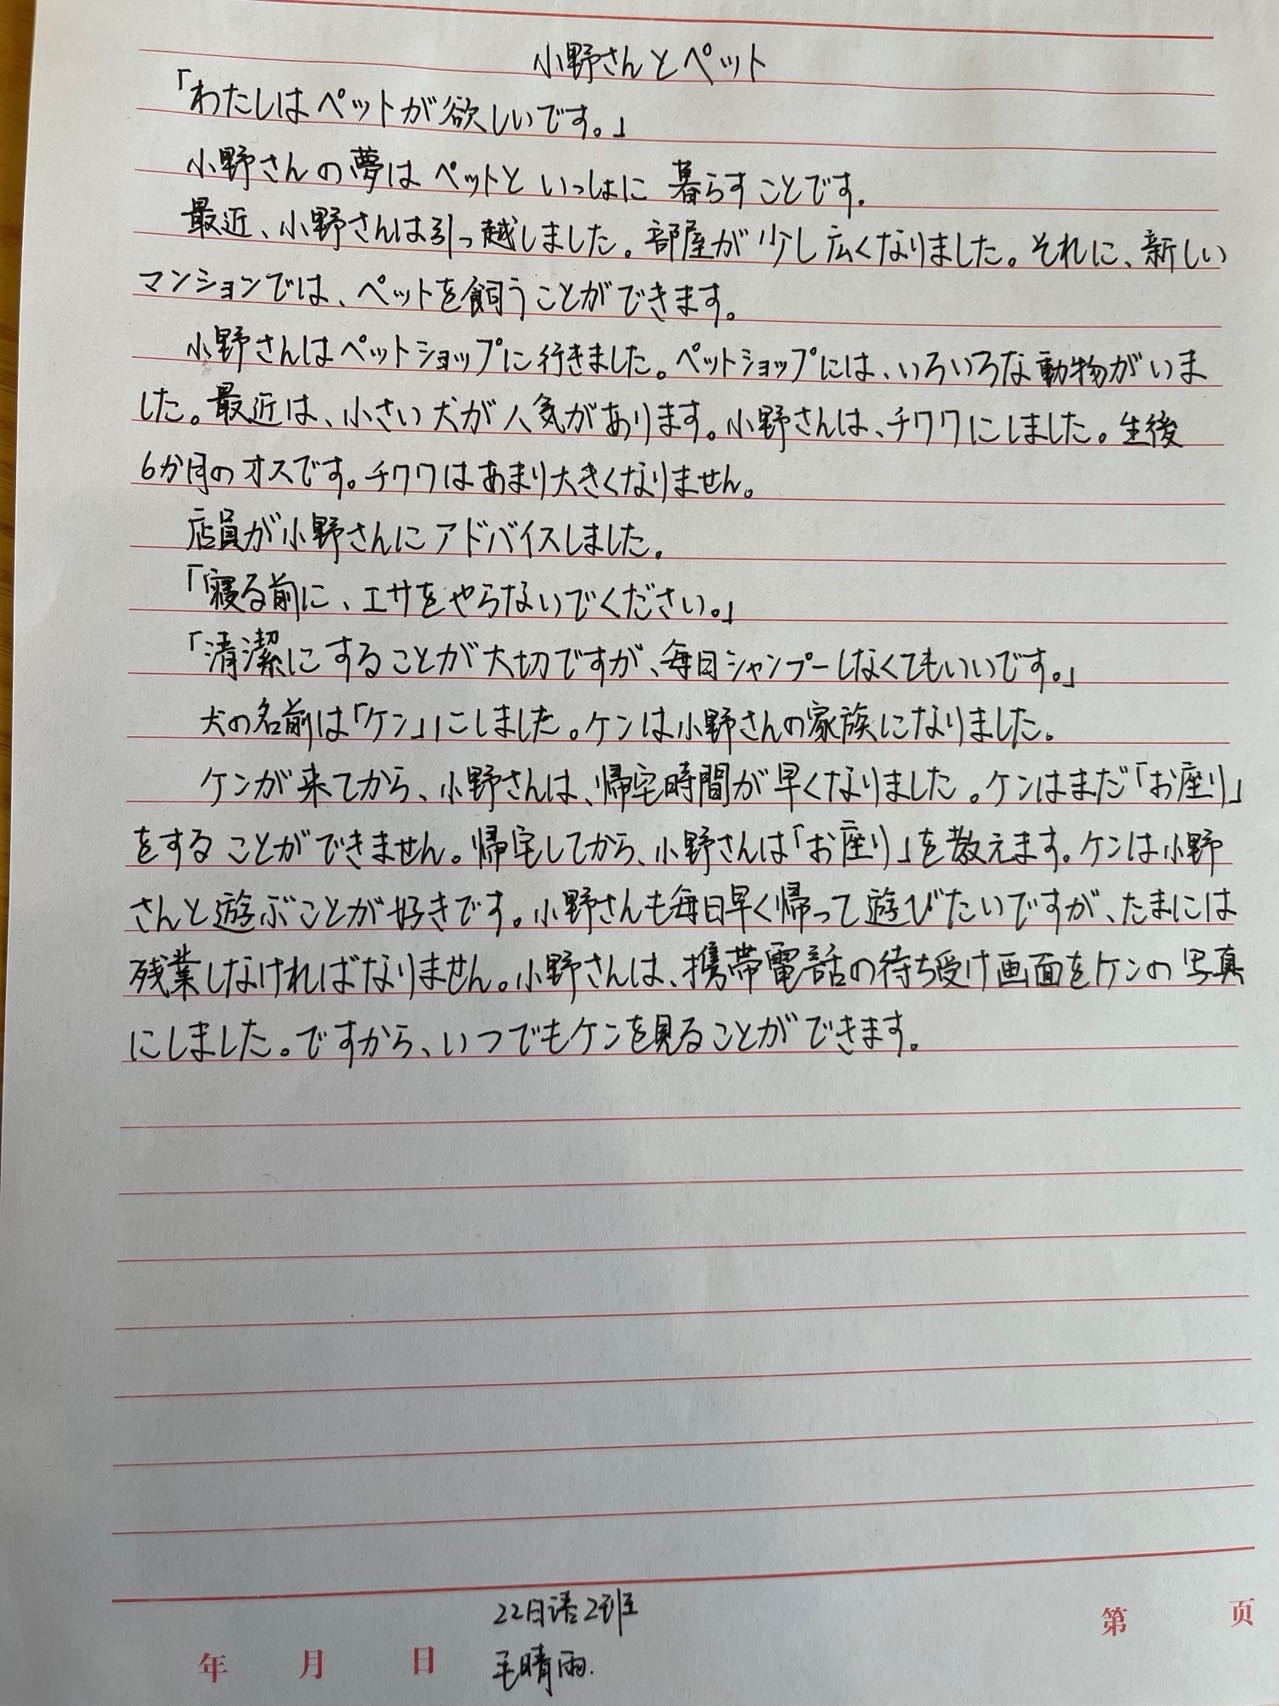 小野さんとペット
「わたしはペットが欲しいです。」
小野さんの夢はペットといっしょに暮らすことです。
最近、小野さんは引っ越しました。部屋が少し広くなりました。それに、新しい
マンションでは、ペットを飼うことができます。
小野さんはペットショップに行きました。ペットショップには、いろいろな動物がいま
した。最近は、小さい犬が人気があります。小野さんは、チワワにしました。生後
6か月のオスです。チワワはあまり大きくなりません。
店員が小野さんにアドバイスしました。
「寝る前に、エサをやらないでください。」
「清潔にすることが大切ですが、毎日シャンプーしなくてもいいです。」
犬の名前は「ケン」にしました。ケンは小野さんの家族になりました。
ケンが来てから、小野さんは、帰宅時間が早くなりました。ケンはまだ「お座り」
をすることができません。帰宅してから、小野さんは「お座り」を教えます。ケンは小野
さんと遊ぶことが好きです。小野さんも毎日早く帰って遊びたいですが、たまには
残業しなければなりません。小野さんは、携帯電話の待ち受け画面をケンの写真
にしました。ですから、いつでもケンを見ることができます。
22日语2班
第 页
年 月 日 毛晴雨.